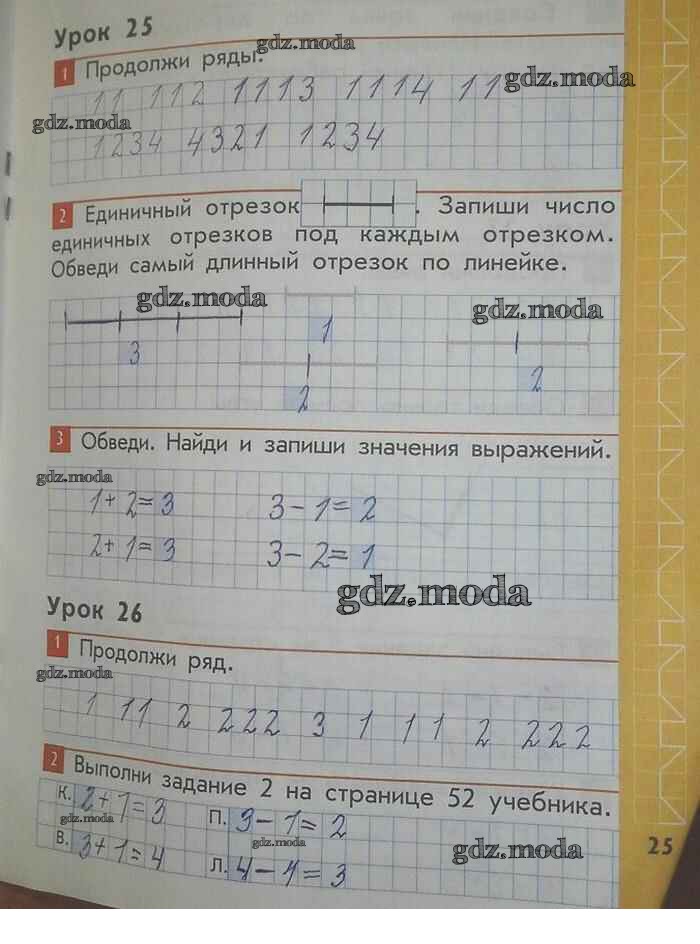 Урок 25
gdz.moda
1 Продолжи ряды.
11 112 1113 1114 11
gdz.moda
gdz.moda
1234 4321 1234
2 Единичный отрезок . Запиши число
единичных отрезков под каждым отрезком.
Обведи самый длинный отрезок по линейке.
gdz.moda
gdz.moda
3 1 2 2
3 Обведи. Найди и запиши значения выражений.
gdz.moda
1+2=3 3-1=2
2+1=3 3-2=1
gdz.moda
Урок 26
1 Продолжи ряд.
gdz.moda
1 11 2 222 3 1 11 2 222
2 Выполни задание 2 на странице 52 учебника.
К. 2+1=3 П. 3-1=2
gdz.moda
gdz.moda
В. 3+1=4 Л. 4-1=3
gdz.moda
25